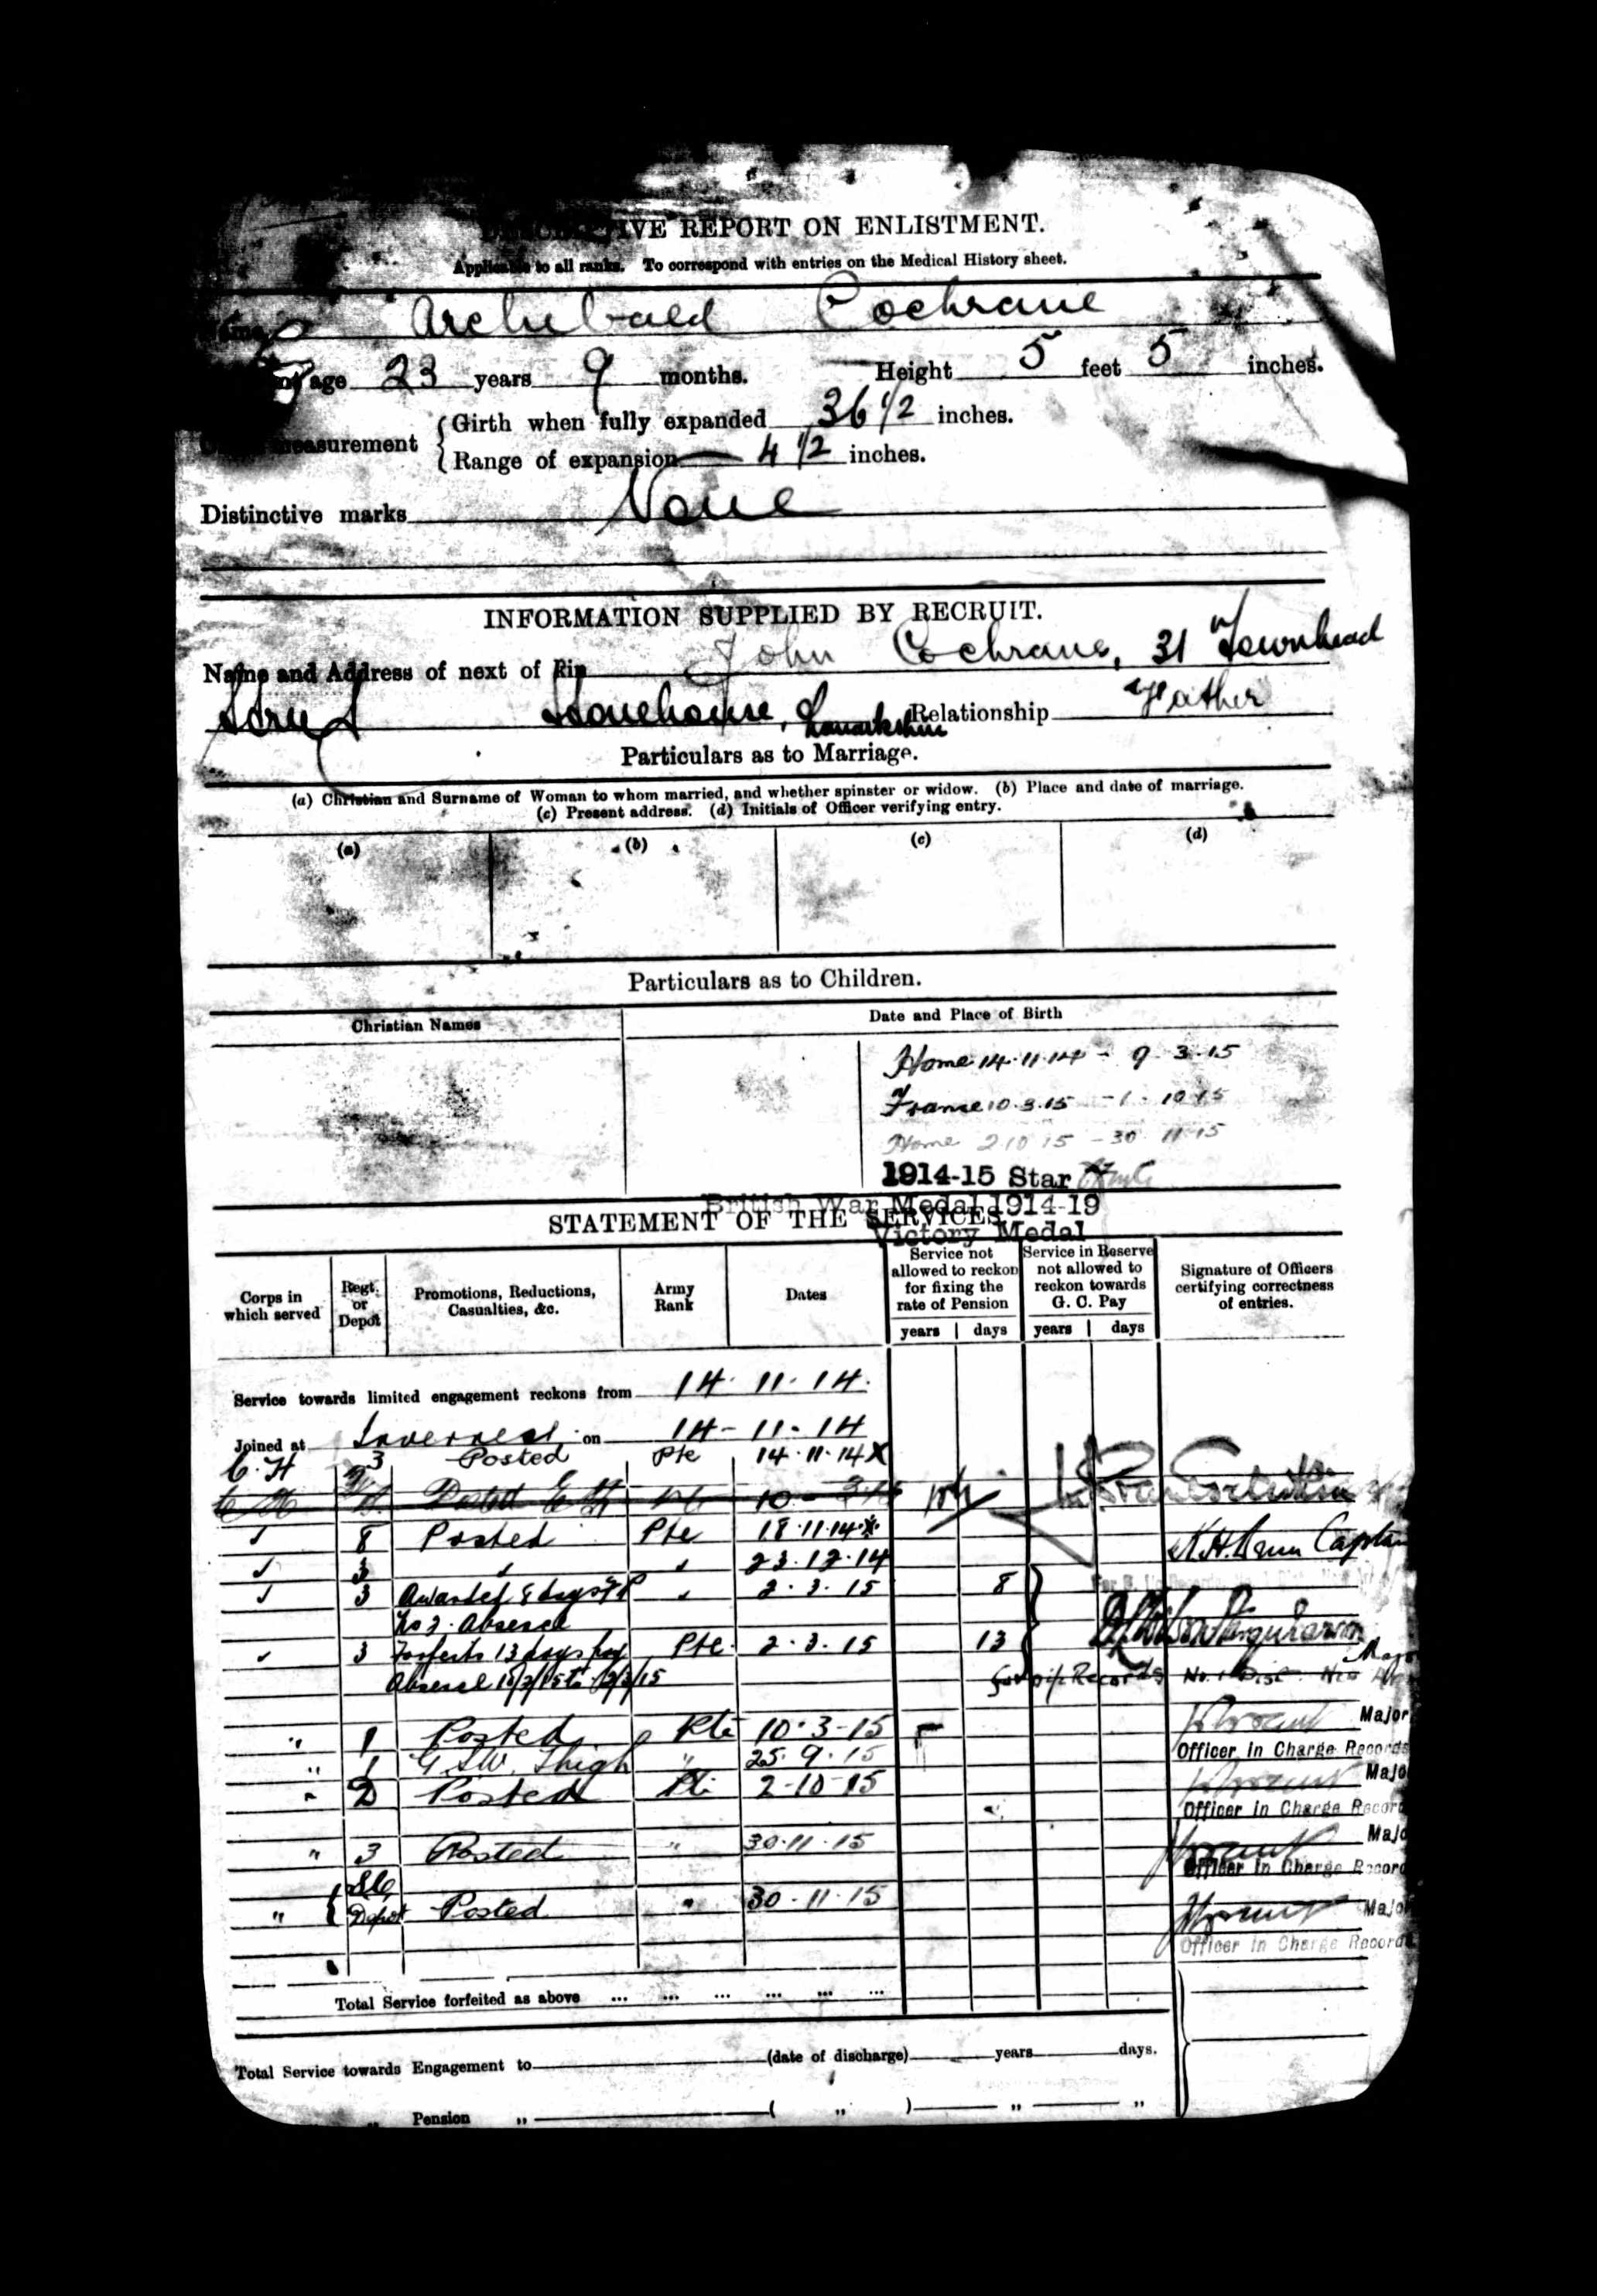 REPORT ON ENLISTMENT.
Applicable to all ranks. To correspond with entries on the Medical History sheet.
Archibald Cochrane
age 23 years 9 months. Height 5 feet 5 inches.
Girth when fully expanded 36 1/2 inches.
measurement
Range of expansion 4 1/2 inches.
Distinctive marks None
INFORMATION SUPPLIED BY RECRUIT.
Name and Address of next of kin John Cochrane, 31 Townhead
Street Stonehouse, Lanarkshire Relationship Father
Particulars as to Marriage.
(a) Christian and Surname of Woman to whom married, and whether spinster or widow. (b) Place and date of marriage.
(c) Present address. (d) Initials of Officer verifying entry.
(a) (b) (c) (d)
Particulars as to Children.
Christian Names Date and Place of Birth
Home 14.11.14 - 9.3.15
France 10.3.15 - 1.10.15
Home 2.10.15 - 30.11.15
1914-15 Star
British War Medal 1914-19
STATEMENT OF THE SERVICES
Victory Medal
Corps in which served Regt. or Depot Promotions, Reductions, Casualties, &c. Army Rank Dates Service not allowed to reckon for fixing the rate of Pension Service in Reserve not allowed to reckon towards G. C. Pay Signature of Officers certifying correctness of entries.
years days years days
Service towards limited engagement reckons from 14.11.14.
Joined at Inverness on 14-11-14
C.H 3 Posted Pte 14.11.14 X
Posted 10-3-
8 Posted Pte 18.11.14
Captain
3 23.12.14
3 Awarded 8 days F P 2.3.15 8
No 2. Absence
3 Forfeits 13 days pay Pte. 2.3.15 13
Major
Absence to 2/3/15 for o/i/c Records No. 1 Dist.
" 1 Posted Pte 10.3-15 Major
Officer in Charge Records
" 1 G.S.W. Thigh " 25.9.15
" D Posted Pte 2-10-15 Major
Officer in Charge Records
" 3 Posted " 30.11.15 Major
Officer in Charge Records
" Depot Posted " 30-11-15 Major
Officer in Charge Records
Total Service forfeited as above ... ... ... ... ... ...
Total Service towards Engagement to (date of discharge) years days.
" Pension " ( " ) " "